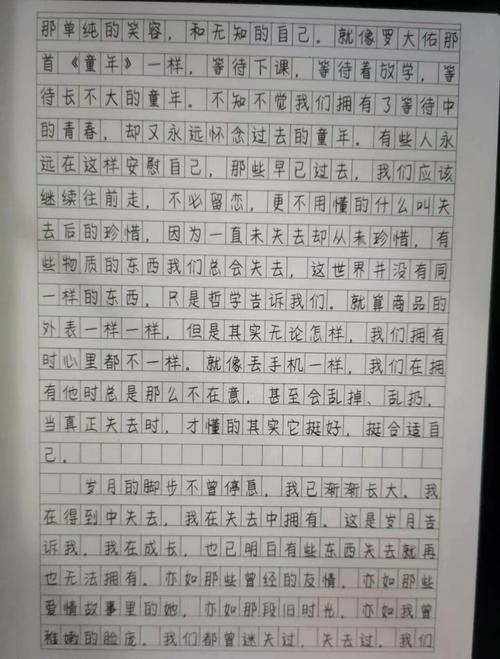 那单纯的笑容，和无知的自己。就像罗大佑那
首《童年》一样，等待下课，等待着放学，等
待长不大的童年。不知不觉我们拥有了等待中
的青春，却又永远怀念过去的童年。有些人永
远在这样安慰自己，那些早已过去，我们应该
继续往前走，不必留恋，更不用懂的什么叫失
去后的珍惜，因为一直未失去却从未珍惜，有
些物质的东西我们总会失去，这世界并没有同
一样的东西，只是哲学告诉我们。就算商品的
外表一样一样，但是其实无论怎样，我们拥有
时心里都不一样。就像丢手机一样，我们在拥
有他时总是那么不在意，甚至会乱掉、乱扔，
当真正失去时，才懂的其实它挺好，挺合适自
己。
岁月的脚步不曾停息，我已渐渐长大。我
在得到中失去，我在失去中拥有。这是岁月告
诉我，我在成长，也已明白有些东西失去就再
也无法拥有。亦如那些曾经的友情，亦如那些
爱情故事里的她，亦如那段旧时光，亦如我曾
稚嫩的脸庞。我们都曾迷失过，失去过。我们